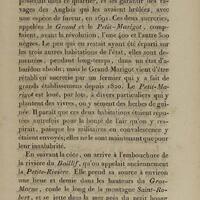 possédait dans ce quartier, et les garantir des ra-
vages des Anglais qui les avaient brûlées, avec
une espèce de fureur, en 1691. Ces deux sucreries,
appelées le Grand et le Petit-Marigot, comp-
taient, avant la révolution, l'une 400 et l'autre 800
nègres. Le peu qui en restait ayant été réparti sur
les trois autres habitations de l'état, elles sont de-
meurées, pendant long-temps, dans un état d'a-
bandon absolu; mais le Grand-Marigot vient d'être
rétabli en sucrerie par un fermier qui y a fait de
grands établissements depuis 1820. Le Petit-Ma-
rigot est loué, par lots, à divers particuliers qui y
plantent des vivres, ou y sèment des herbes de gui-
née. Il paraît que ces deux habitations étaient repu-
tées autrefois pour la bonté de l'air qu'on y respi-
rait, puisque les militaires en convalescence y
étaient envoyés; elles ne le sont maintenant que pour
leur insalubrité.
En suivant la côte, on arrive à l'embouchure de
la rivière du Hailtif, qu'on appelait anciennement
la Petite-Rivière. Elle prend sa source à environ
une lieue et demie dans les hauteurs du Gros-
Morne, coule le long de la montagne Saint-Ro-
bert, et se jette dans la mer près du petit bourg